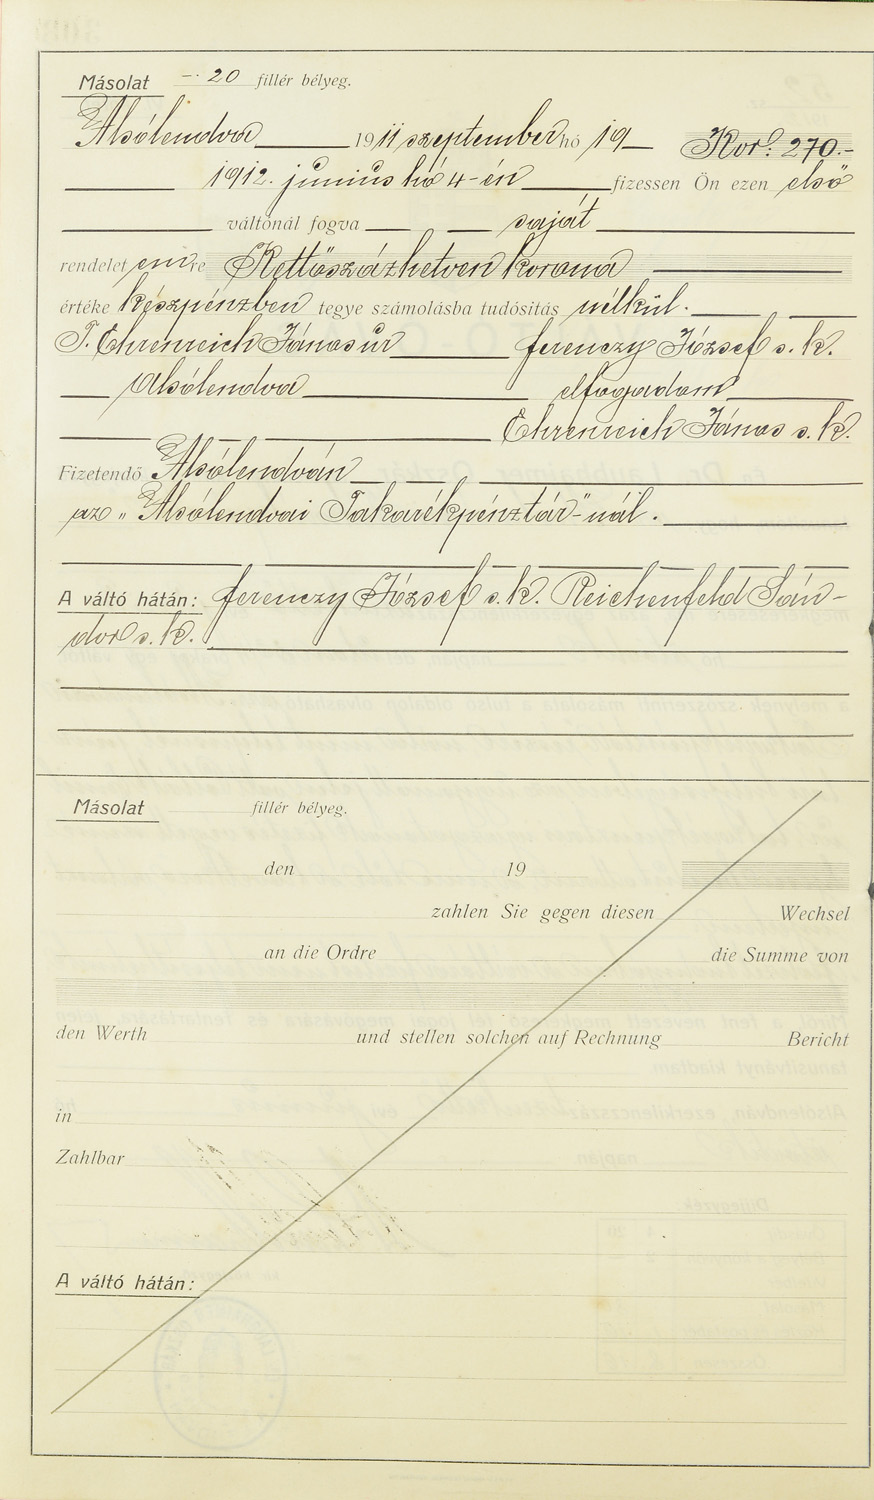 Másolat -·20 fillér bélyeg.
Alsólendva 1911 szeptember hó 19 Kor: 270.-
1912. június hó 4-én fizessen Ön ezen első
váltónál fogva saját
rendelet emre Kettőszázhetven korona
értéke készpénzben tegye számolásba tudósitás nélkül.
T. Ehrenreich János úr ferenczy József s. k.
Alsólendva elfogadom
Ehrenreich János s. k.
Fizetendő Alsólendván
az „Alsólendvai Takarékpénztár"-nál.
A váltó hátán: ferenczy József s. k. Reichenfeld Sán-
dor s. k.
Másolat fillér bélyeg.
den 19
zahlen Sie gegen diesen Wechsel
an die Ordre die Summe von
den Werth und stellen solchen auf Rechnung Bericht
in
Zahlbar
A váltó hátán: